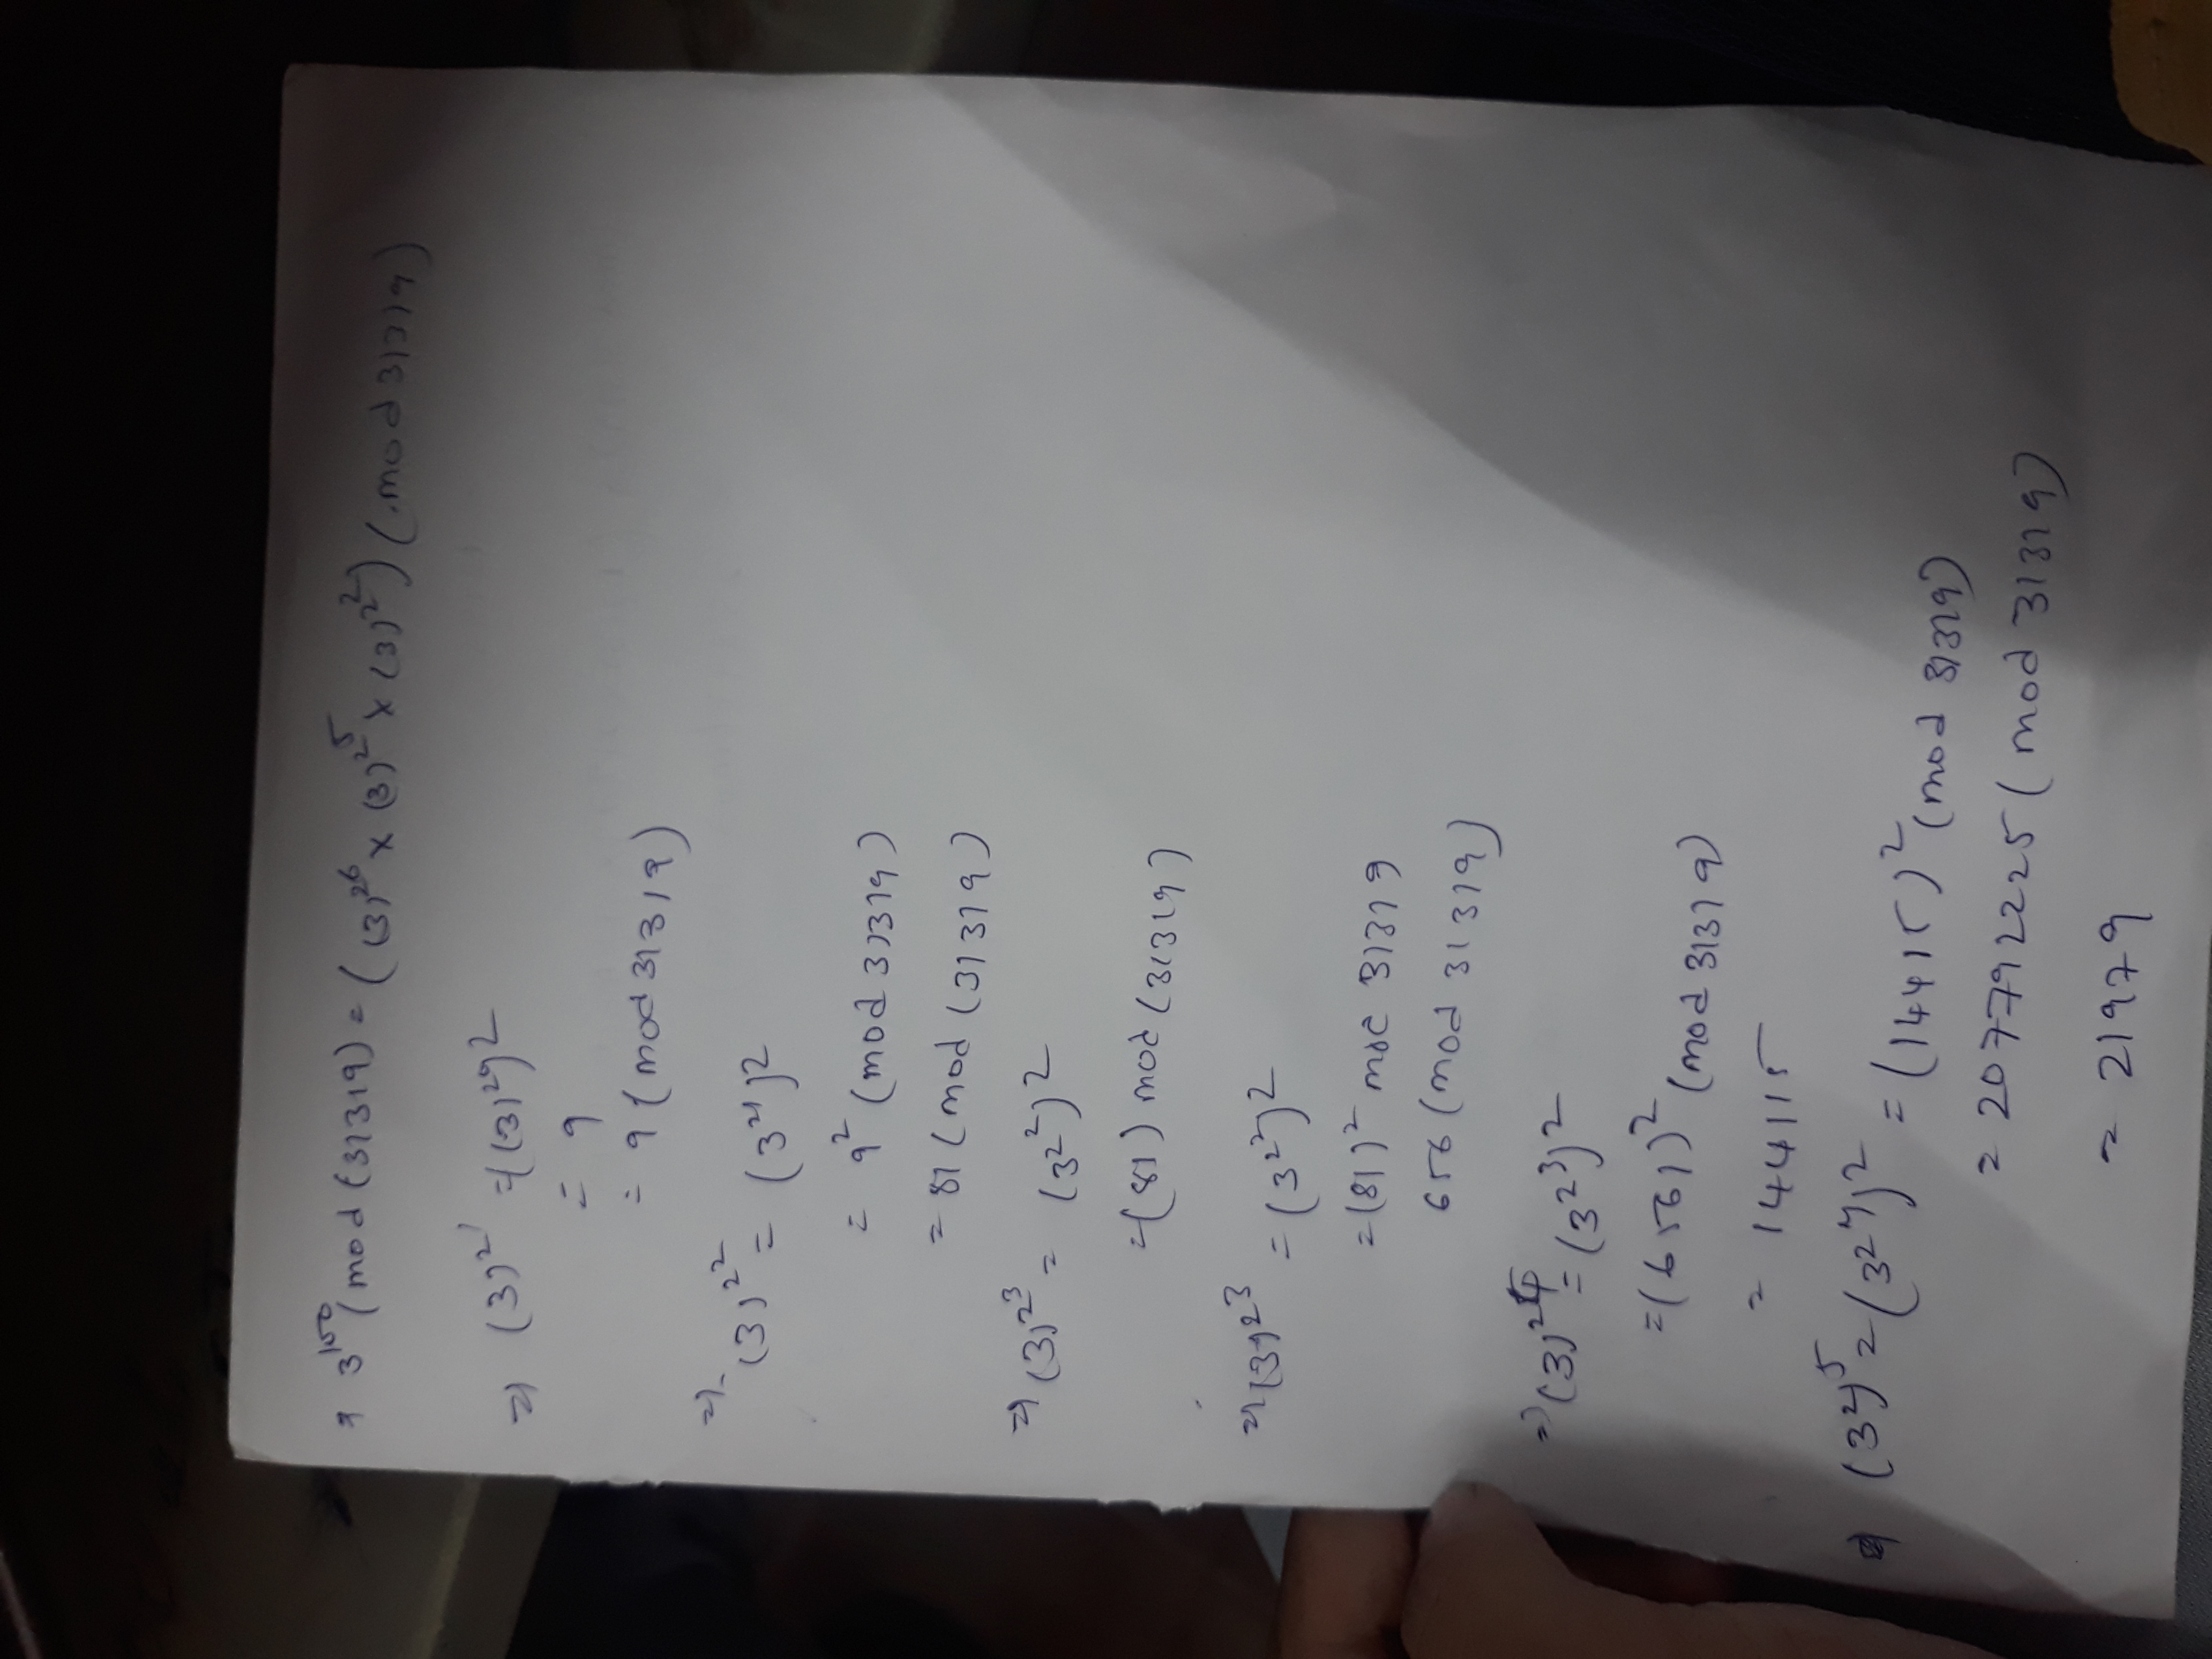 3^100 (mod (31319) = ((3)^2^6 × (3)^2^5 × (3)^2^2) (mod 31319)
=) (3)^2^1 = ((3)^2^0)^2
= 9
= 9 (mod 31319)
=) (3)^2^2 = (3^2^1)^2
= 9^2 (mod 31319)
= 81 (mod (31319)
=) (3)^2^3 = (3^2^2)^2
= (81) mod (31319)
=) (3)^2^3 = (3^2^2)^2
= (81)^2 mod 31319
656 (mod 31319)
=) (3)^2^4 = (3^2^3)^2
= (6561)^2 (mod 31319)
= 144115
(3^2)^5 = (3^2^4)^2 = (14415)^2 (mod 31319)
= 207792225 (mod 31319)
= 21979